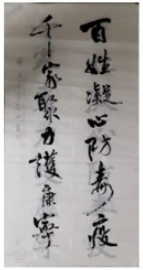 百姓凝心防毒疫
千家聚力護康寧